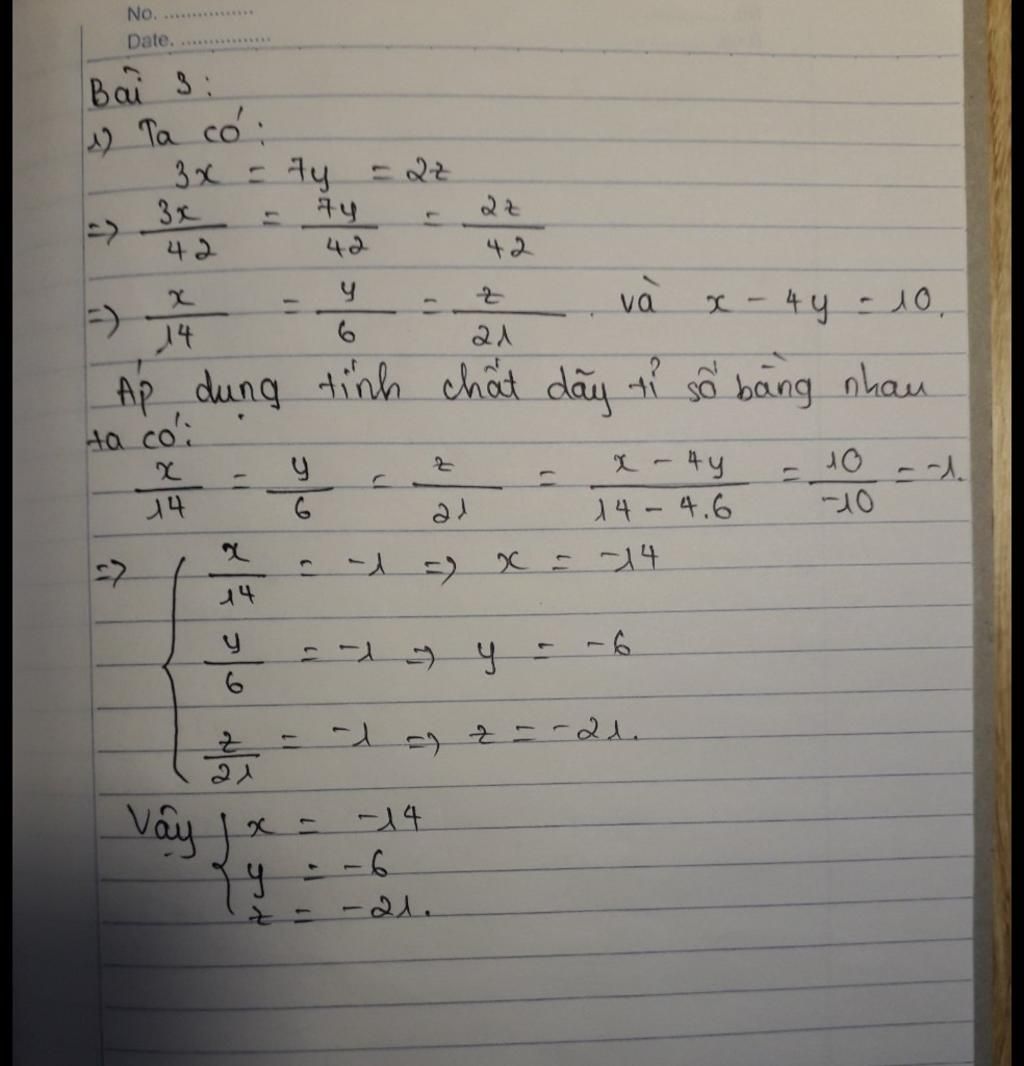 No. ...............
Date. ...............
Bài 3:
1) Ta có:
3x = 7y = 2z
=> 3x/42 = 7y/42 = 2z/42
=> x/14 = y/6 = z/21 và x - 4y = 10.
Áp dụng tính chất dãy tỉ số bằng nhau
ta có:
x/14 = y/6 = z/21 = x - 4y/14 - 4.6 = 10/-10 = -1.
=> { x/14 = -1 => x = -14
y/6 = -1 => y = -6
z/21 = -1 => z = -21.
Vậy { x = -14
y = -6
z = -21.